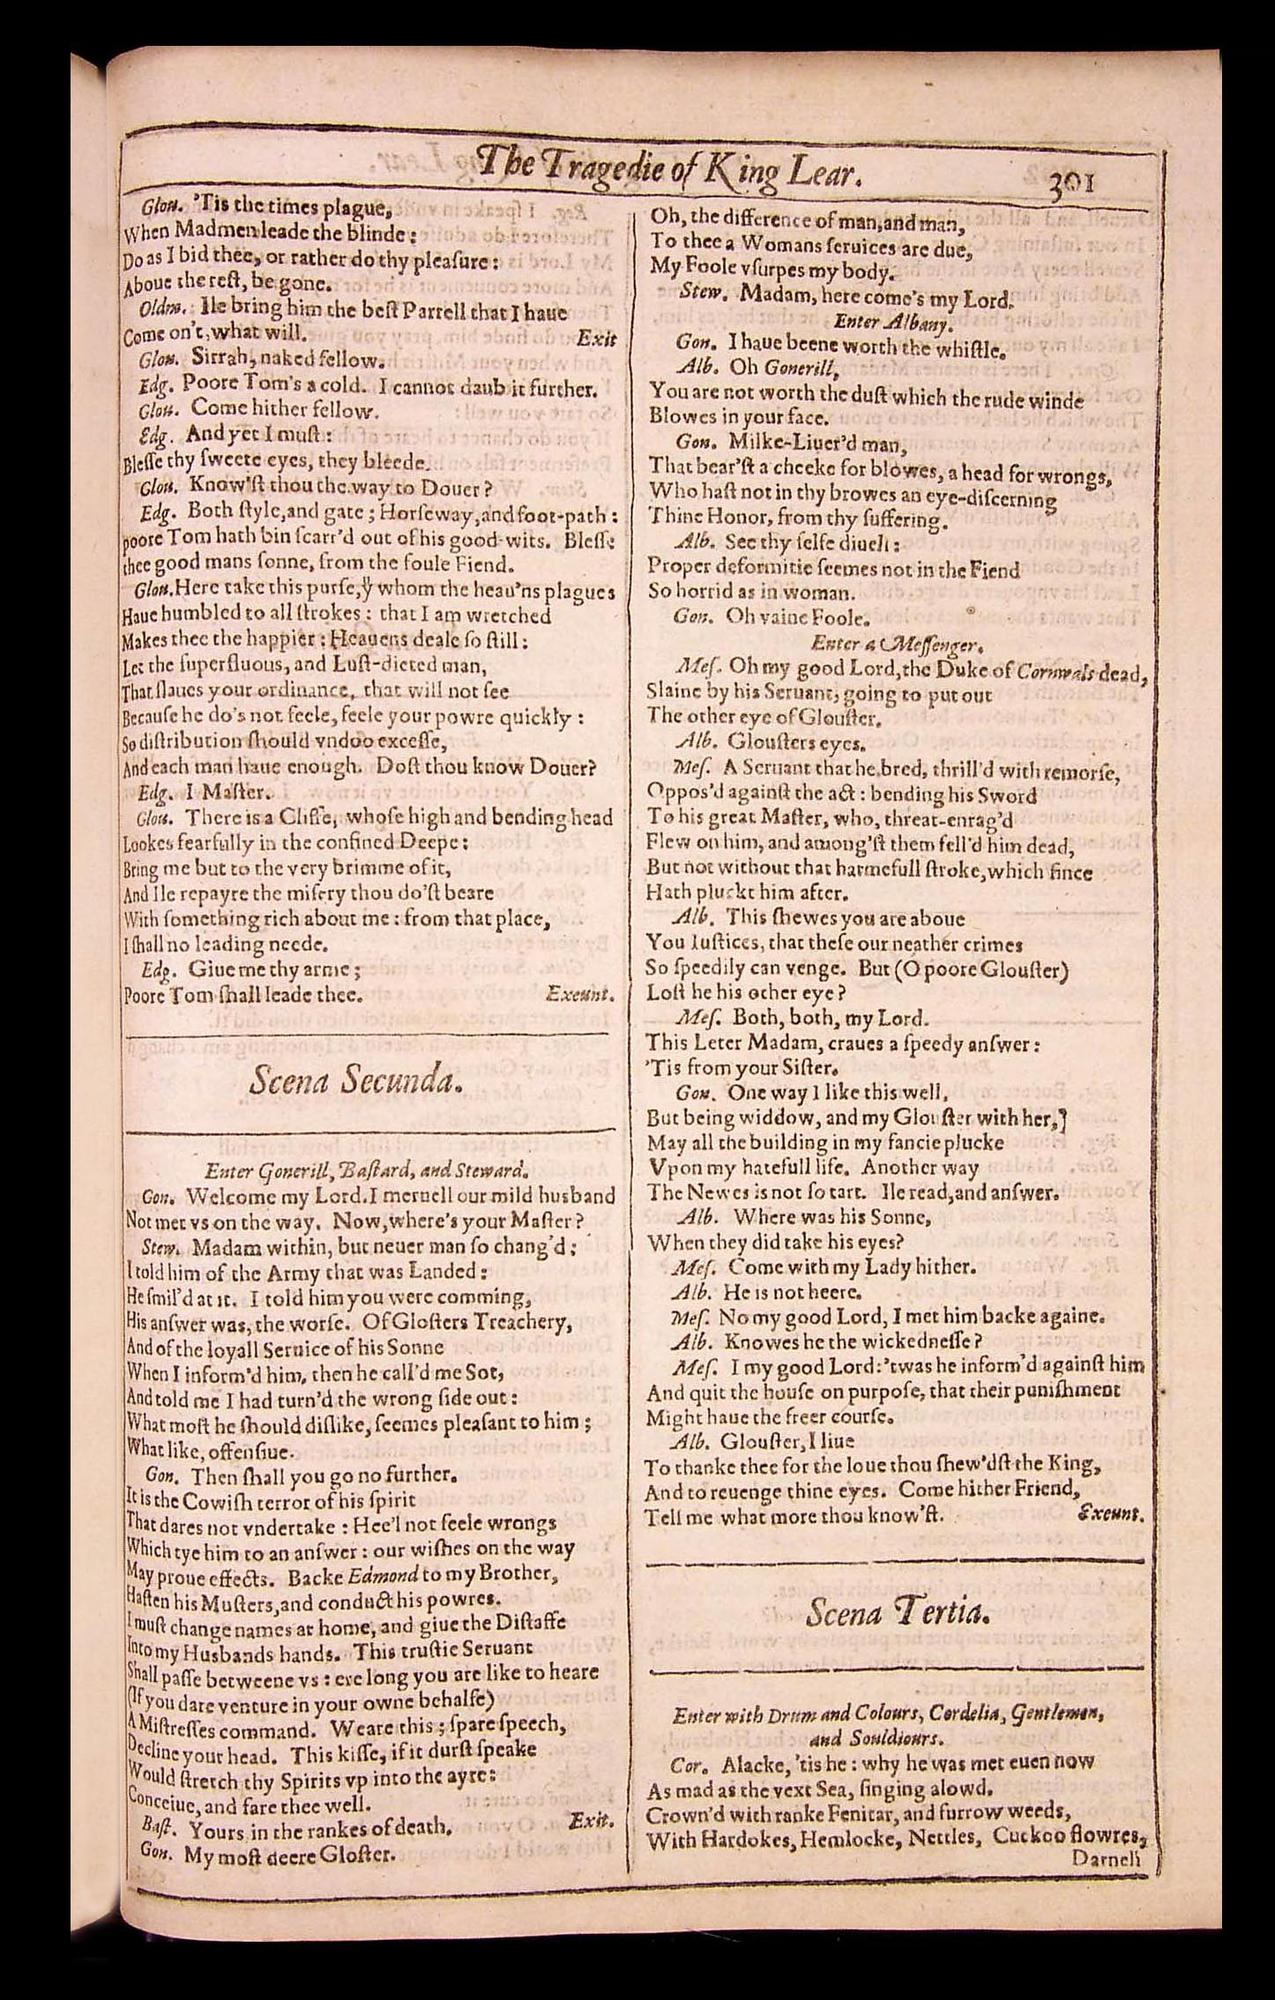 The Tragedie of King Lear.
301
Glou. 'Tis the times plague,
When Madmen leade the blinde:
Do as I bid thee, or rather do thy pleaſure:
Aboue the reſt, be gone.
Oldm. Ile bring him the beſt Parrell that I haue
Come on't, what will. Exit
Glou. Sirrah, naked fellow.
Edg. Poore Tom's a cold. I cannot daub it further.
Glou. Come hither fellow.
Edg. And yet I muſt:
Bleſſe thy ſweete eyes, they bleede.
Glou. Know'ſt thou the way to Douer?
Edg. Both ſtyle, and gate; Horſeway, and foot-path:
poore Tom hath bin ſcarr'd out of his good wits. Bleſſe
thee good mans ſonne, from the foule Fiend.
Glou. Here take this purſe, yͭ whom the heau'ns plagues
Haue humbled to all ſtrokes: that I am wretched
Makes thee the happier: Heauens deale ſo ſtill:
Let the ſuperfluous, and Luſt-dieted man,
That ſlaues your ordinance, that will not ſee
Becauſe he do's not feele, feele your powre quickly:
So diſtribution ſhould vndoo exceſſe,
And each man haue enough. Doſt thou know Douer?
Edg. I Maſter.
Glou. There is a Cliffe, whoſe high and bending head
Lookes fearfully in the confined Deepe:
Bring me but to the very brimme of it,
And Ile repayre the miſery thou do'ſt beare
With ſomething rich about me: from that place,
I ſhall no leading neede.
Edg. Giue me thy arme;
Poore Tom ſhall leade thee. Exeunt.
Scena Secunda.
Enter Gonerill, Baſtard, and Steward.
Gon. Welcome my Lord. I meruell our mild husband
Not met vs on the way. Now, where's your Maſter?
Stew. Madam within, but neuer man ſo chang'd:
I told him of the Army that was Landed:
He ſmil'd at it. I told him you were comming,
His anſwer was, the worſe. Of Gloſters Treachery,
And of the loyall Seruice of his Sonne
When I inform'd him, then he call'd me Sot,
And told me I had turn'd the wrong ſide out:
What moſt he ſhould diſlike, ſeemes pleaſant to him;
What like, offenſiue.
Gon. Then ſhall you go no further.
It is the Cowiſh terror of his ſpirit
That dares not vndertake: Hee'l not feele wrongs
Which tye him to an anſwer: our wiſhes on the way
May proue effects. Backe Edmond to my Brother,
Haſten his Muſters, and conduct his powres.
I muſt change names at home, and giue the Diſtaffe
Into my Husbands hands. This truſtie Seruant
Shall paſſe betweene vs: ere long you are like to heare
(If you dare venture in your owne behalfe)
A Miſtreſſes command. Weare this; ſpare ſpeech,
Decline your head. This kiſſe, if it durſt ſpeake
Would ſtretch thy Spirits vp into the ayre:
Conceiue, and fare thee well.
Baſt. Yours in the rankes of death. Exit.
Gon. My moſt deere Gloſter.
Oh, the difference of man, and man,
To thee a Womans ſeruices are due,
My Foole vſurpes my body.
Stew. Madam, here come's my Lord.
Enter Albany.
Gon. I haue beene worth the whiſtle.
Alb. Oh Gonerill,
You are not worth the duſt which the rude winde
Blowes in your face.
Gon. Milke-Liuer'd man,
That bear'ſt a cheeke for blowes, a head for wrongs,
Who haſt not in thy browes an eye-diſcerning
Thine Honor, from thy ſuffering.
Alb. See thy ſelfe diuell:
Proper deformitie ſeemes not in the Fiend
So horrid as in woman.
Gon. Oh vaine Foole.
Enter a Meſſenger.
Meſ. Oh my good Lord, the Duke of Cornwals dead,
Slaine by his Seruant, going to put out
The other eye of Glouſter.
Alb. Glouſters eyes.
Meſ. A Seruant that he bred, thrill'd with remorſe,
Oppos'd againſt the act: bending his Sword
To his great Maſter, who, threat-enrag'd
Flew on him, and among'ſt them fell'd him dead,
But not without that harmefull ſtroke, which ſince
Hath pluckt him after.
Alb. This ſhewes you are aboue
You Iuſtices, that theſe our neather crimes
So ſpeedily can venge. But (O poore Glouſter)
Loſt he his other eye?
Meſ. Both, both, my Lord.
This Leter Madam, craues a ſpeedy anſwer:
'Tis from your Siſter.
Gon. One way I like this well,
But being widdow, and my Glouſter with her,
May all the building in my fancie plucke
Vpon my hatefull life. Another way
The Newes is not ſo tart. Ile read, and anſwer.
Alb. Where was his Sonne,
When they did take his eyes?
Meſ. Come with my Lady hither.
Alb. He is not heere.
Meſ. No my good Lord, I met him backe againe.
Alb. Knowes he the wickedneſſe?
Meſ. I my good Lord: 'twas he inform'd againſt him
And quit the houſe on purpoſe, that their puniſhment
Might haue the freer courſe.
Alb. Glouſter, I liue
To thanke thee for the loue thou ſhew'dſt the King,
And to reuenge thine eyes. Come hither Friend,
Tell me what more thou know'ſt. Exeunt.
Scena Tertia.
Enter with Drum and Colours, Cordelia, Gentlemen,
and Souldiours.
Cor. Alacke, 'tis he: why he was met euen now
As mad as the vext Sea, ſinging alowd.
Crown'd with ranke Fenitar, and furrow weeds,
With Hardokes, Hemlocke, Nettles, Cuckoo flowres,
Darnell